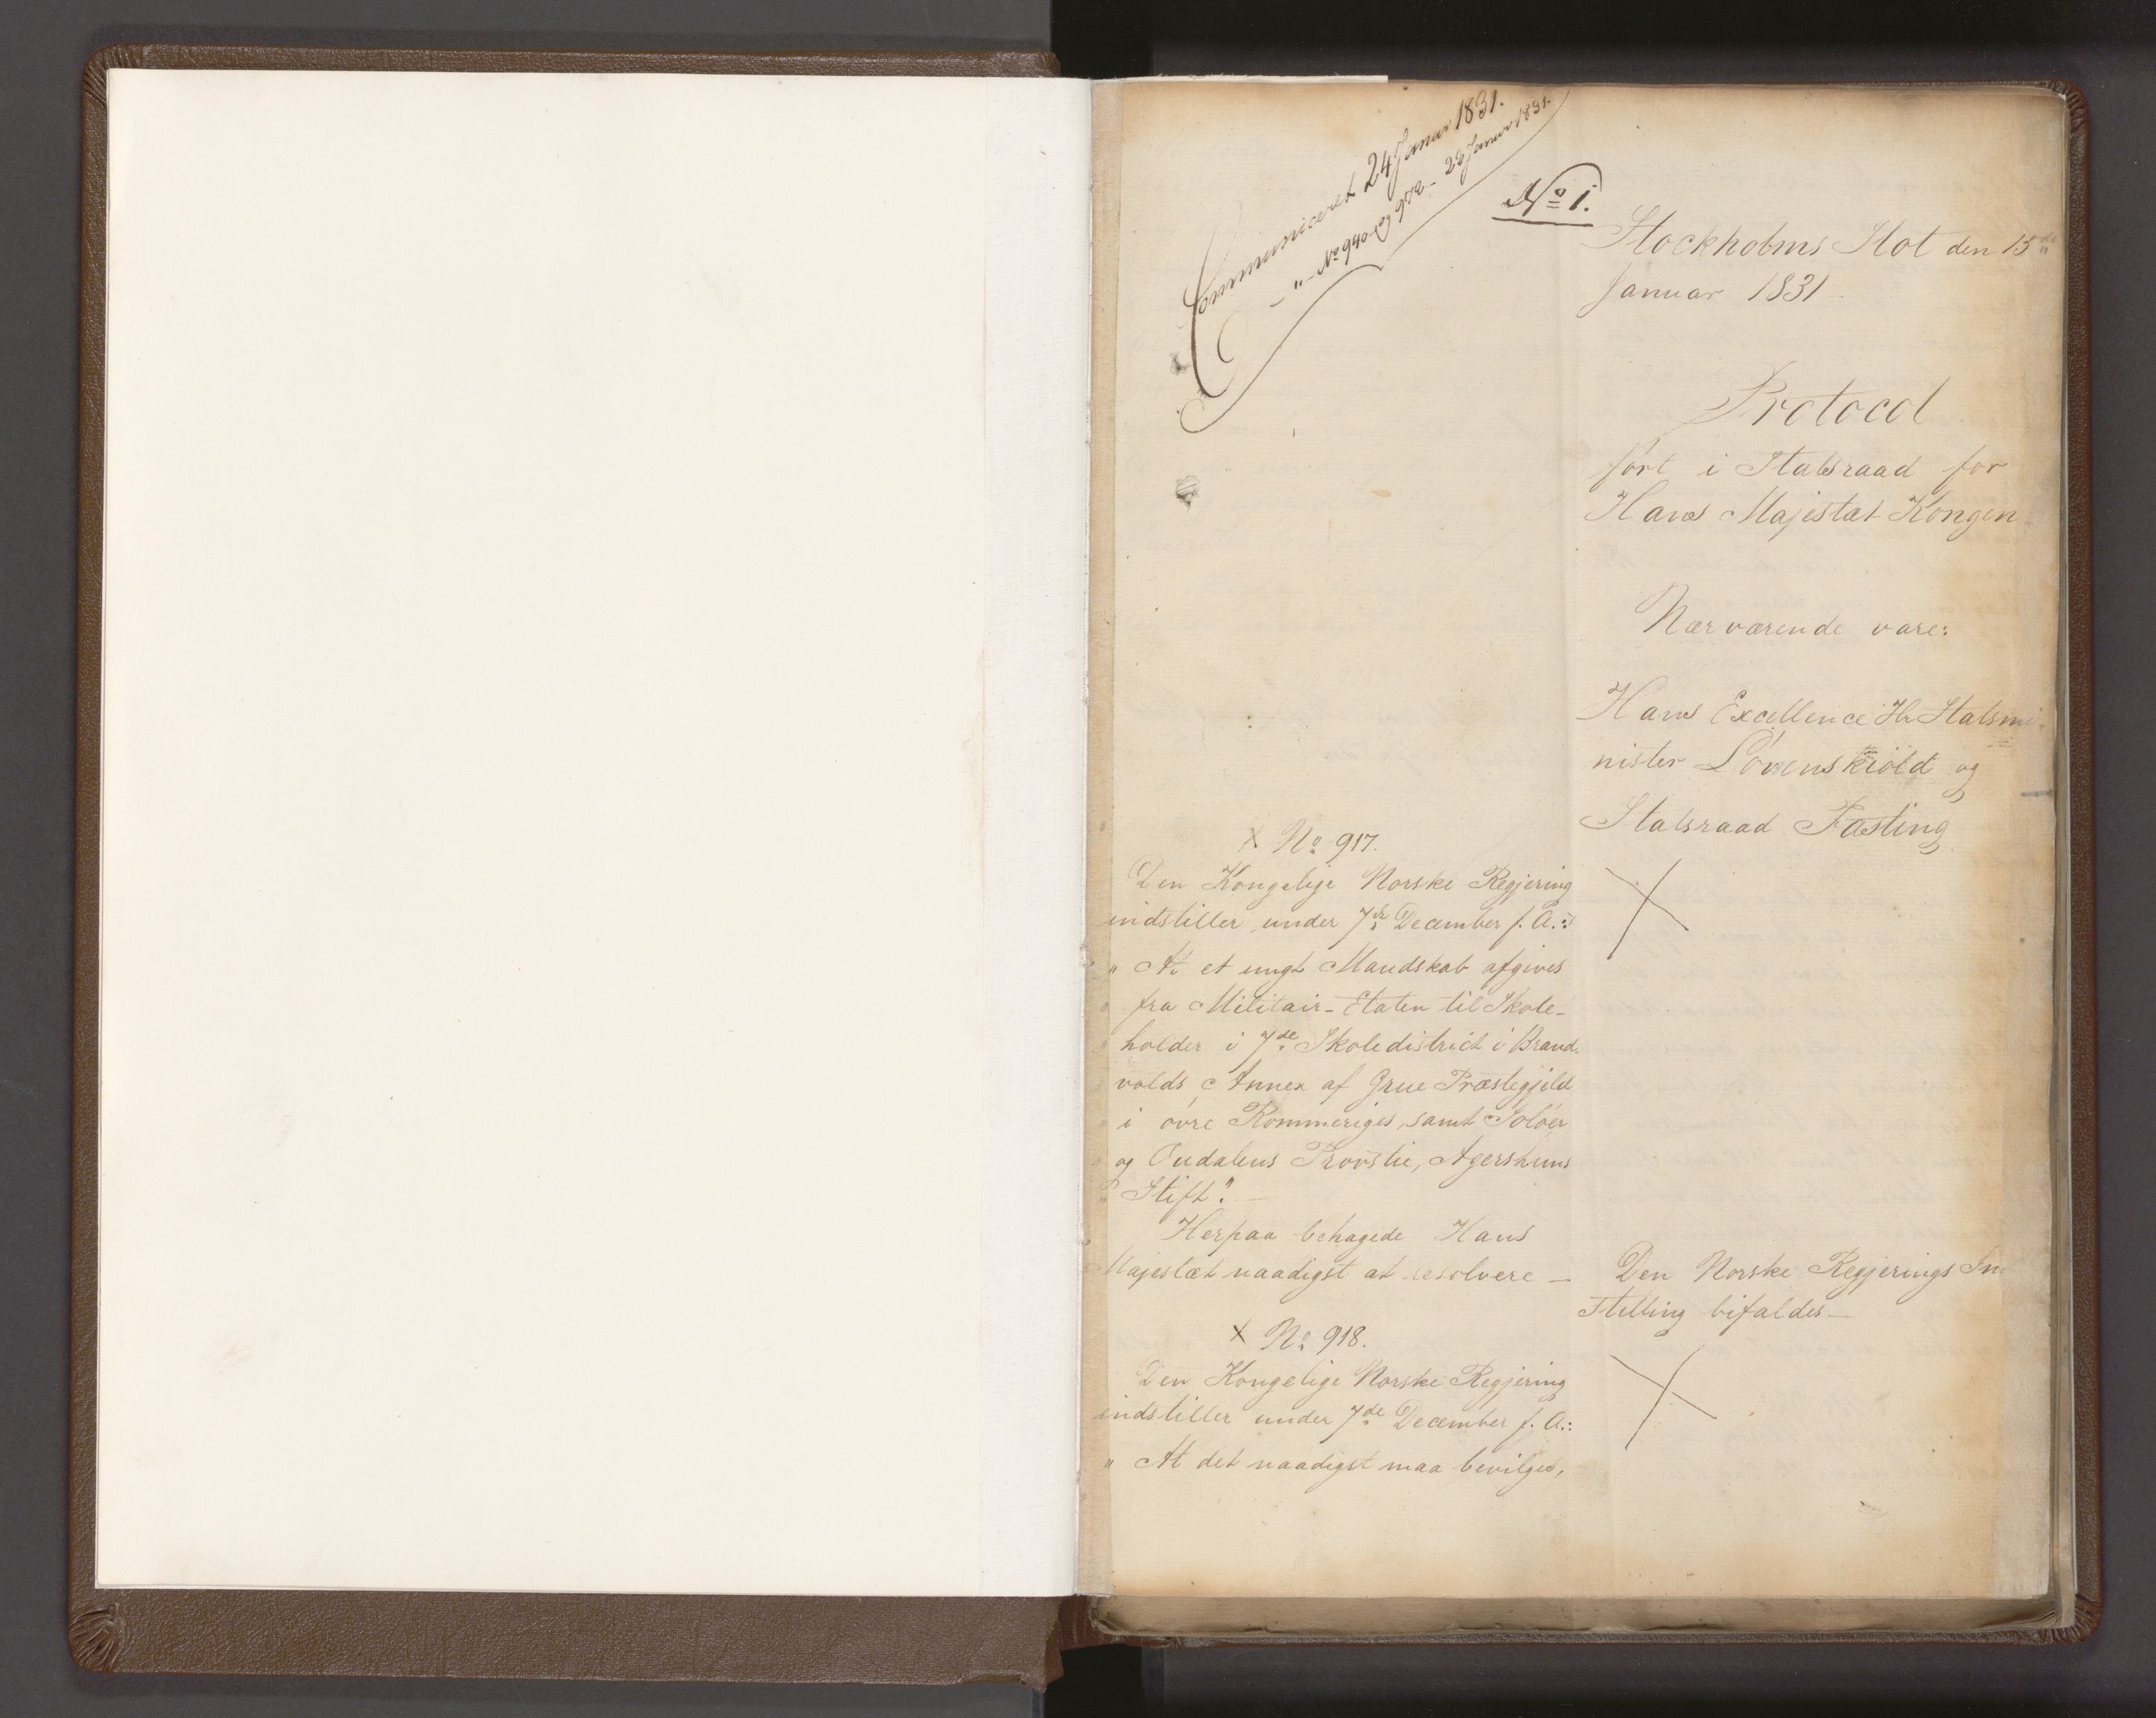 Communiceret 24 Januar 1831.
– " – No 964 og 972 – 28 Januar 1831.
No 1.
Stockholms Slot den 15de
Januar 1831
Protocol
ført i Statsraad for
Hans Majestæt Kongen
Nærværende vare:
Hans Excellence Hr Statsmi-
nister Løvenskiold og
Statsraad Fasting
x No 917.
Den Kongelige Norske Regjering
indstiller under 7de December f. A.:
" At et ungt Mandskab afgives
" fra Militair-Etaten til Skole-
holder i 7de Skoledistrict i Brand-
volds Annex af Grue Præstegjeld
i øvre Rommeriges, samt Soløer
og Oudalens Provstie, Agershuus
" Stift." –
Herpaa behagede Hans
Majestæt naadigst at resolvere –
Den Norske Regjerings Ind
stilling bifaldes –
x No 918.
Den Kongelige Norske Regjering
indstiller under 7de December f. A.:
" At det naadigst maa bevilges,